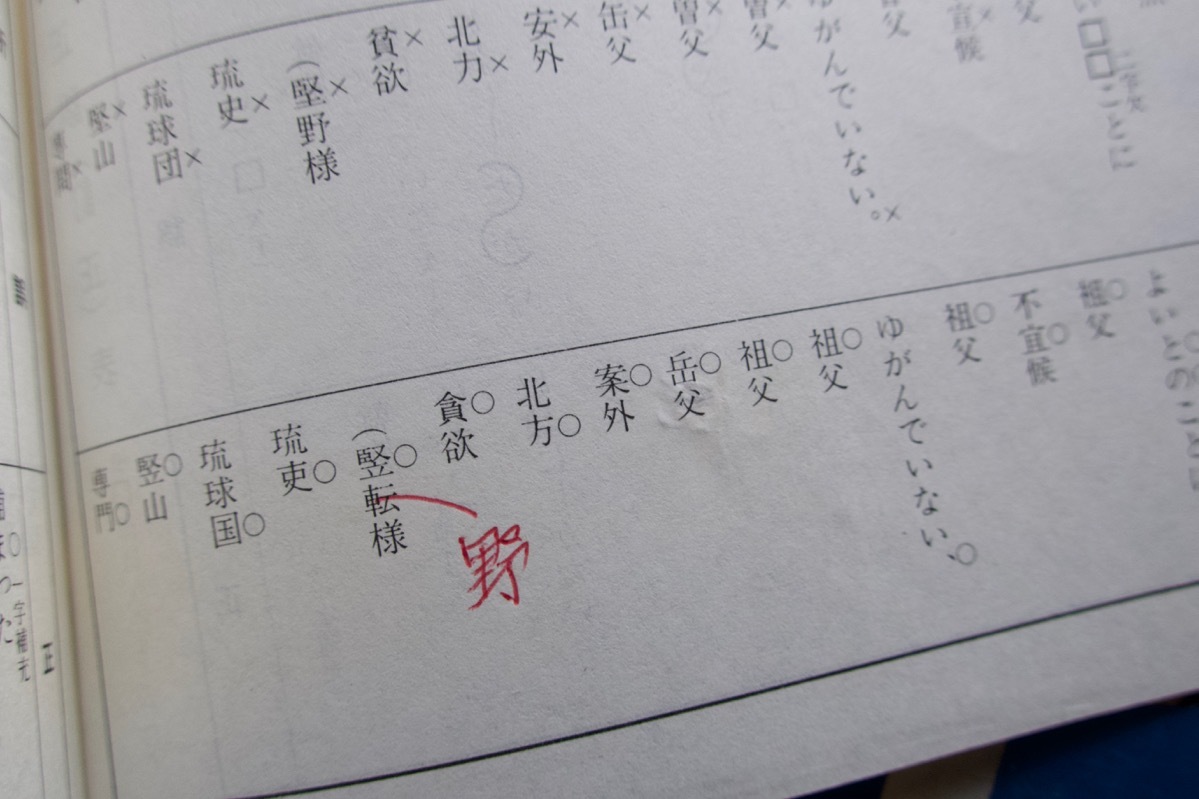 い□□ことに
二字欠
父
宜×候
父
ゆがんでいない。×
曽×父
曽×父
缶×父
安×外
北力×
貧×欲
（堅×野様
琉史×
琉球団×
堅×山
専間×
よいとのことに
祖○父
不宜○候
祖○父
ゆがんでいない、○
祖○父
祖○父
岳○父
案○外
北方○
貪○欲
（竪○転様
野
琉吏○
琉球国○
竪○山
専門○
正
一字補充